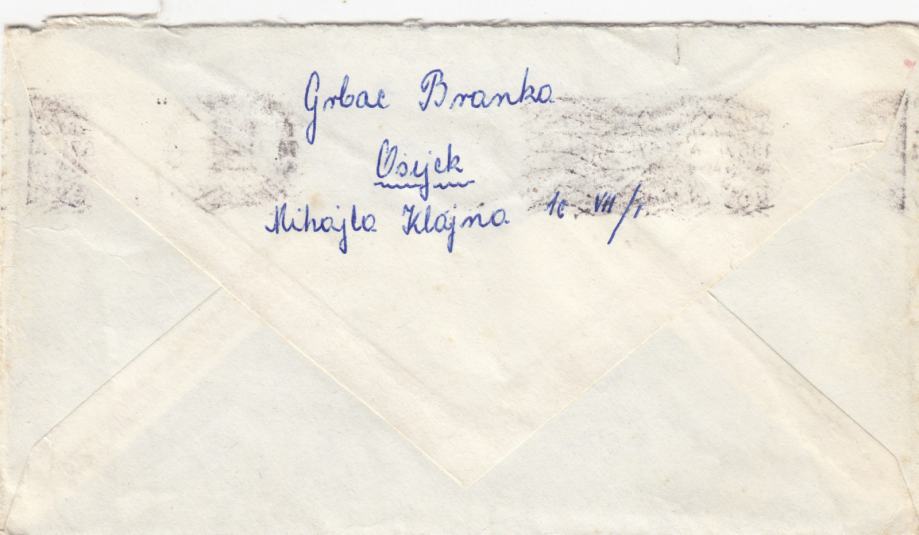 Grbac Branka
Osijek
Mihajla Klajna 1c VII/1.